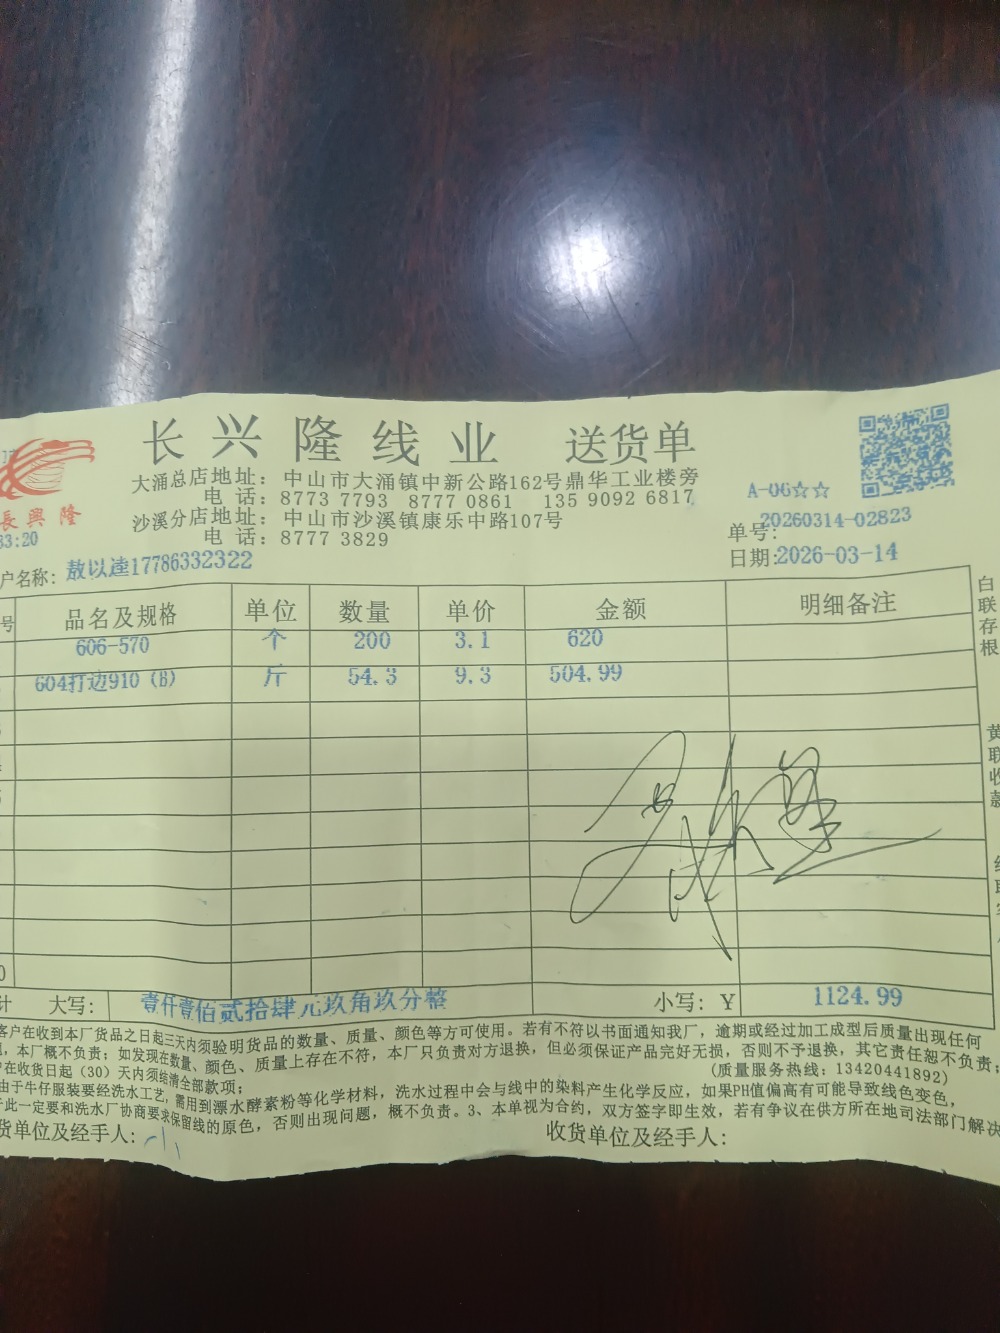 长兴隆线业 送货单
大涌总店地址：中山市大涌镇中新公路162号鼎华工业楼旁
电 话：8773 7793 8777 0861 135 9092 6817
沙溪分店地址：中山市沙溪镇康乐中路107号
电 话：8777 3829
長興隆
33:20
A-06☆☆
单号：20260314-02823
日期:2026-03-14
户名称：敖以逵17786332322
号 品名及规格 单位 数量 单价 金额 明细备注
606-570 个 200 3.1 620
604打边910（B） 斤 54.3 9.3 504.99
计 大写：壹仟壹佰贰拾肆元玖角玖分整 小写：Y 1124.99
客户在收到本厂货品之日起三天内须验明货品的数量、质量、颜色等方可使用。若有不符以书面通知我厂，逾期或经过加工成型后质量出现任何
，本厂概不负责；如发现在数量、颜色、质量上存在不符，本厂只负责对方退换，但必须保证产品完好无损，否则不予退换，其它责任恕不负责；
在收货日起（30）天内须结清全部款项； (质量服务热线：13420441892)
由于牛仔服装要经洗水工艺，需用到漂水酵素粉等化学材料，洗水过程中会与线中的染料产生化学反应，如果PH值偏高有可能导致线色变色，
于此一定要和洗水厂协商要求保留线的原色，否则出现问题，概不负责。3、本单视为合约，双方签字即生效，若有争议在供方所在地司法部门解决
货单位及经手人： 收货单位及经手人：
白联存根
黄联收款